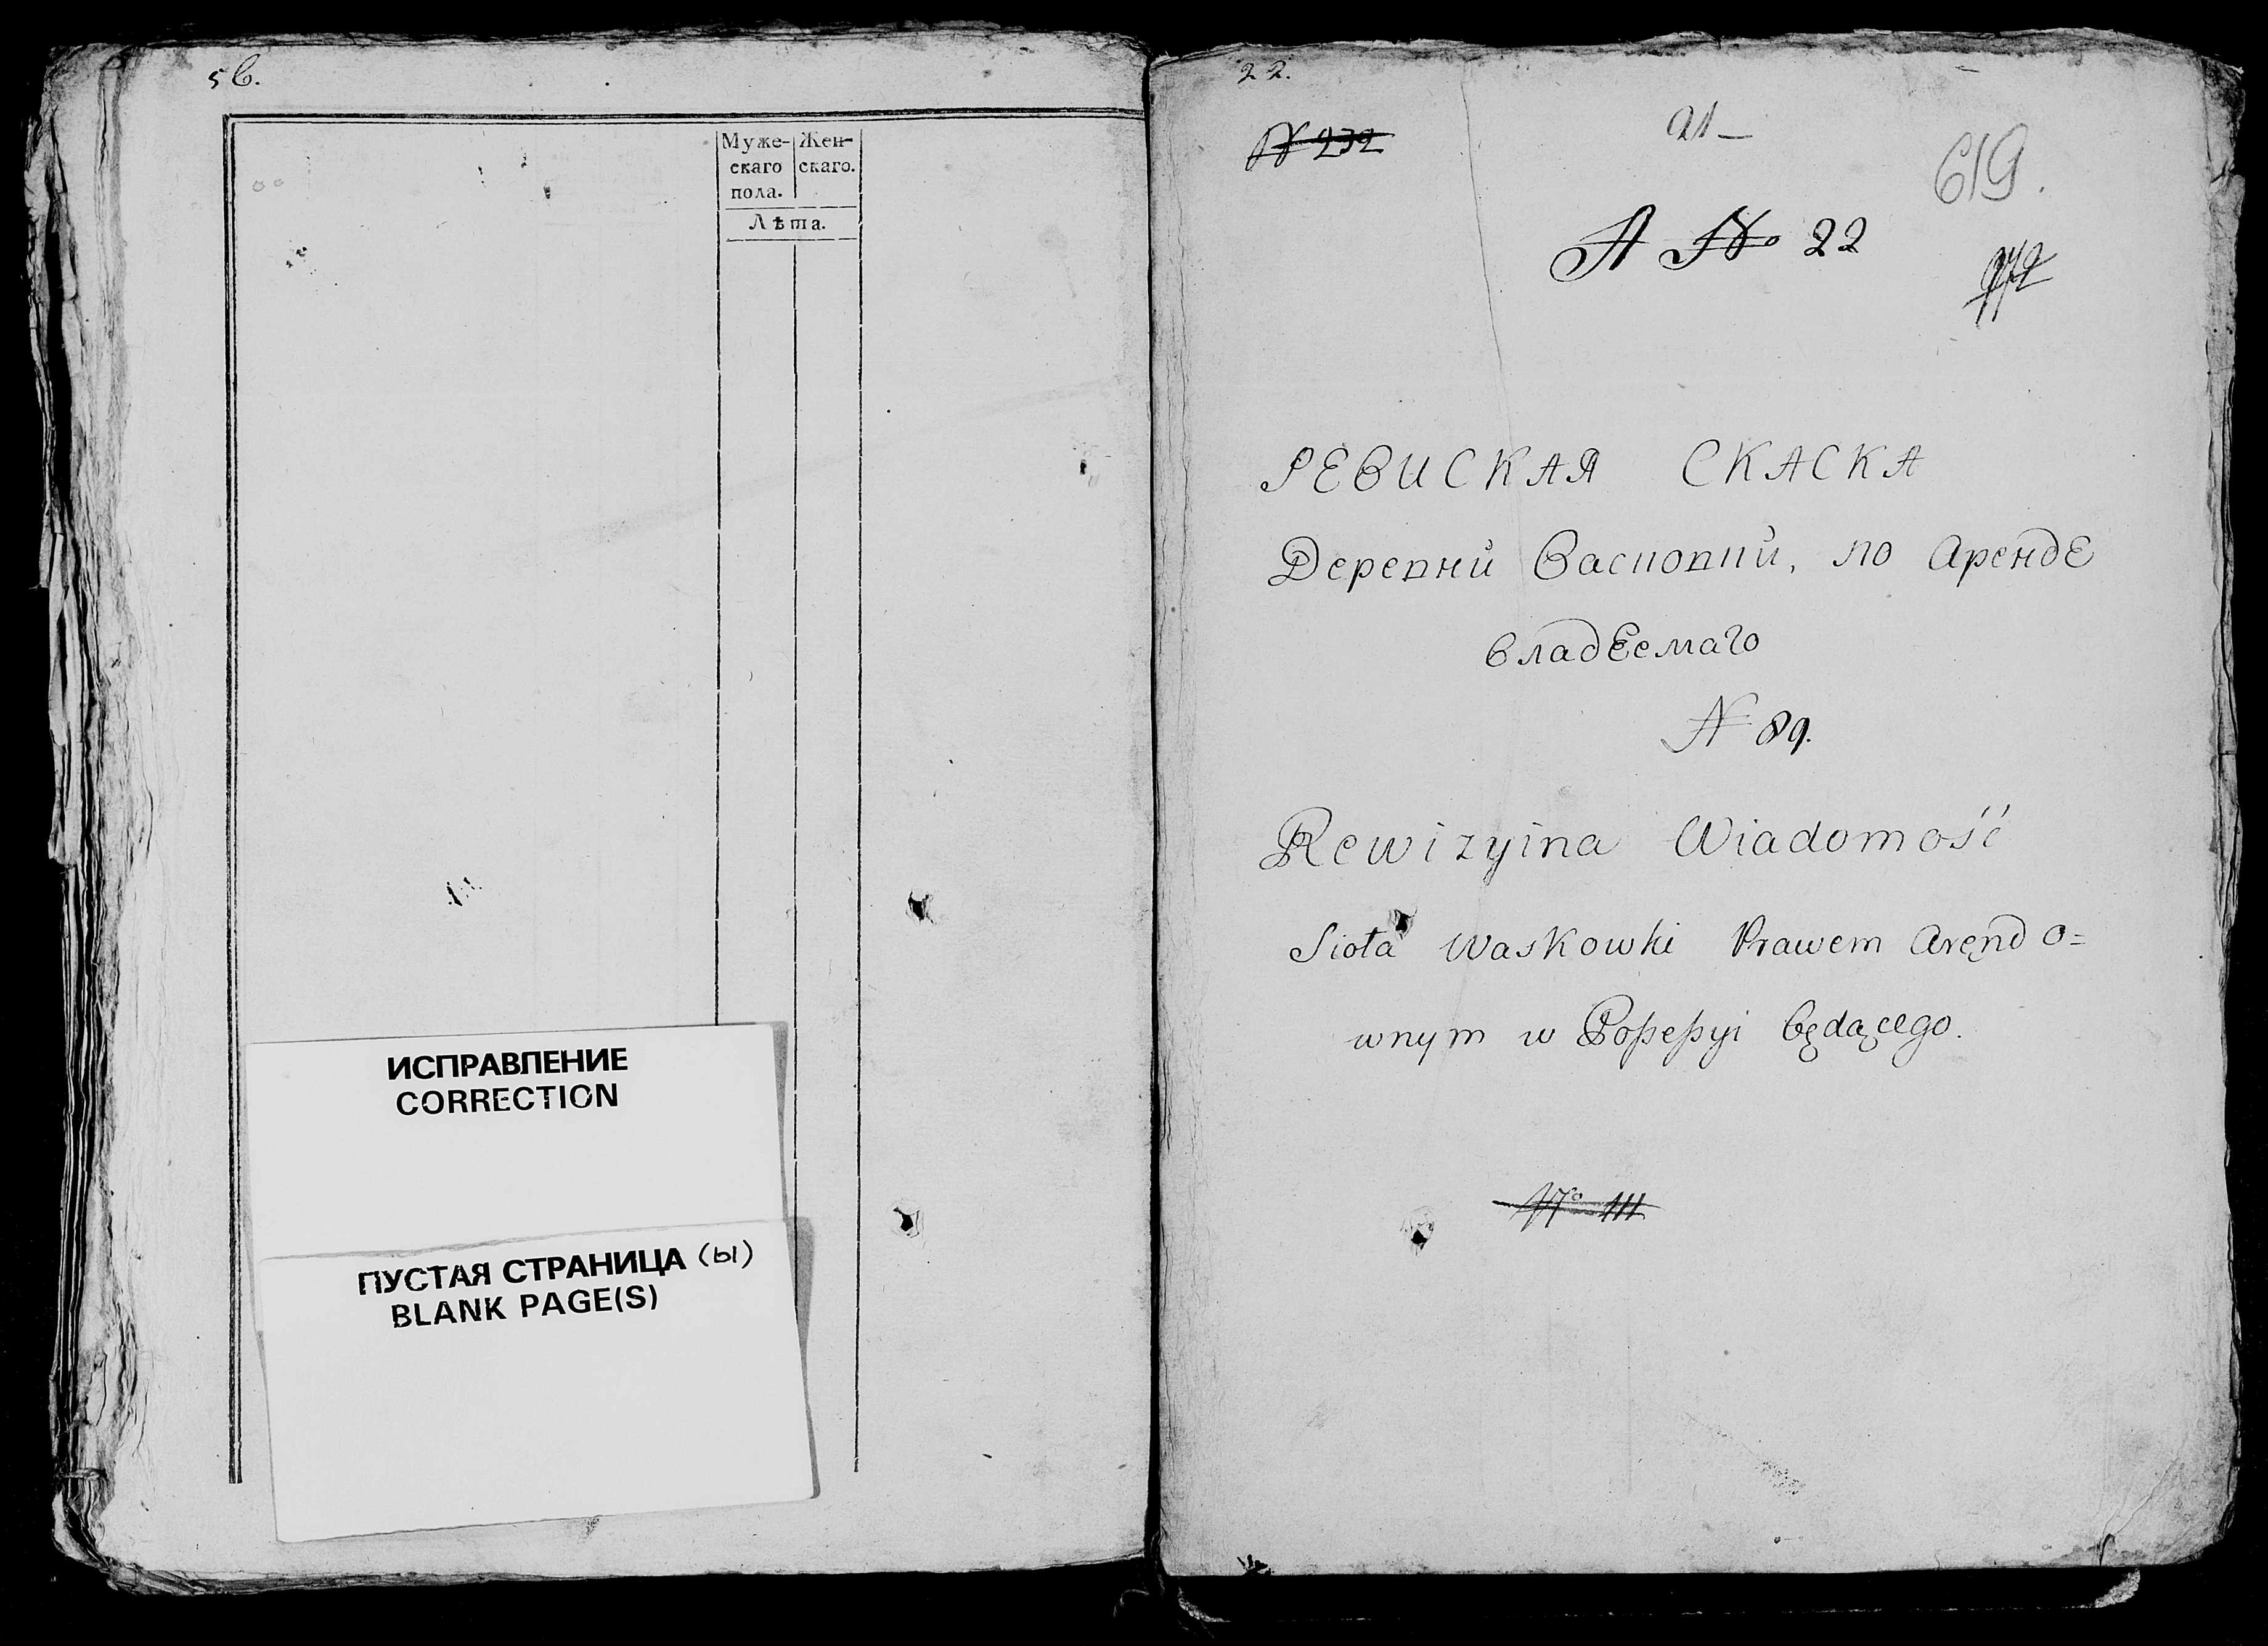 56.
Муже-
скаго
пола.
Жен-
скаго.
Лѣта.
ИСПРАВЛЕНИЕ
CORRECTION
ПУСТАЯ СТРАНИЦА (ы)
BLANK PAGE(S)
22.
№ 232
21 —
619.
А № 22
РЕВИСКАЯ СКАСКА
Деревни Васковки, по Арендѣ
владѣемаго
N 89.
Rewizyina Wiadomość
Sioła Waskowki Prawem Arendo=
wnym w Possessyi będącego.
№ 111